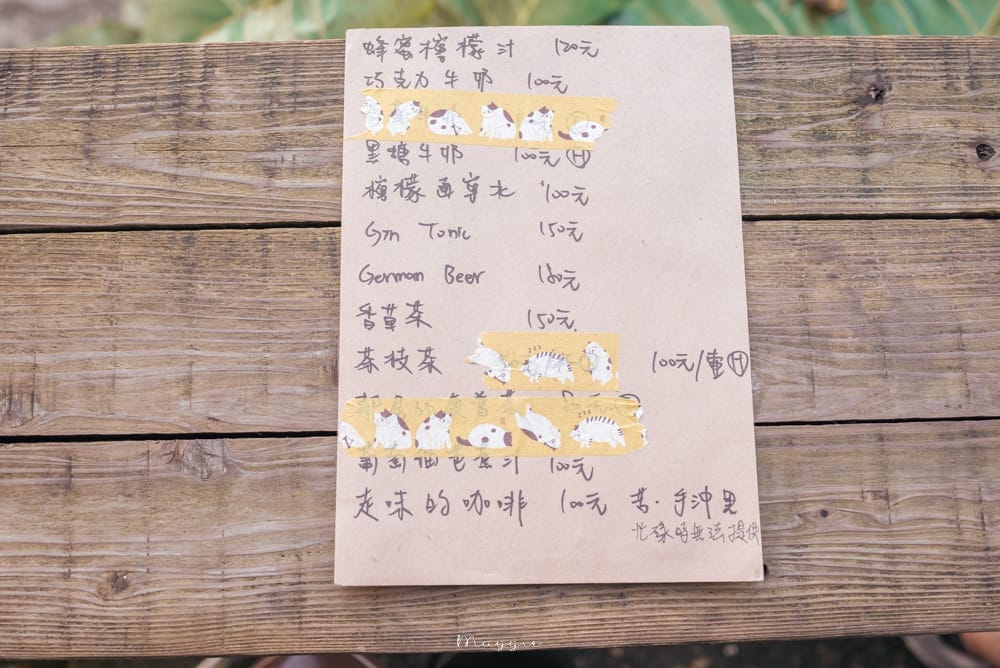 蜂蜜檸檬汁 120元
巧克力牛奶 100元
黑糖牛奶 100元 Ⓗ
檸檬通寧水 100元
Gin Tonic 150元
German Beer 180元
香草茶 150元
茶枝茶 100元/壺 Ⓗ
100元
走味的咖啡 100元 苦·手沖黑
忙碌時無法提供
Maggie